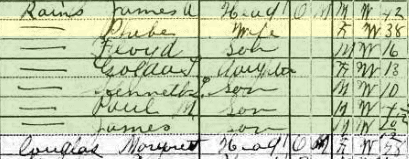 Rains James A Head O M M W 42
— Phebe Wife F W 38
— Floyd Son M W 16
— Golda Daughter F W 13
— Kenneth L Son M W 10
— Paul M Son M W
— James Son M W
Douglas Margret Head O F W